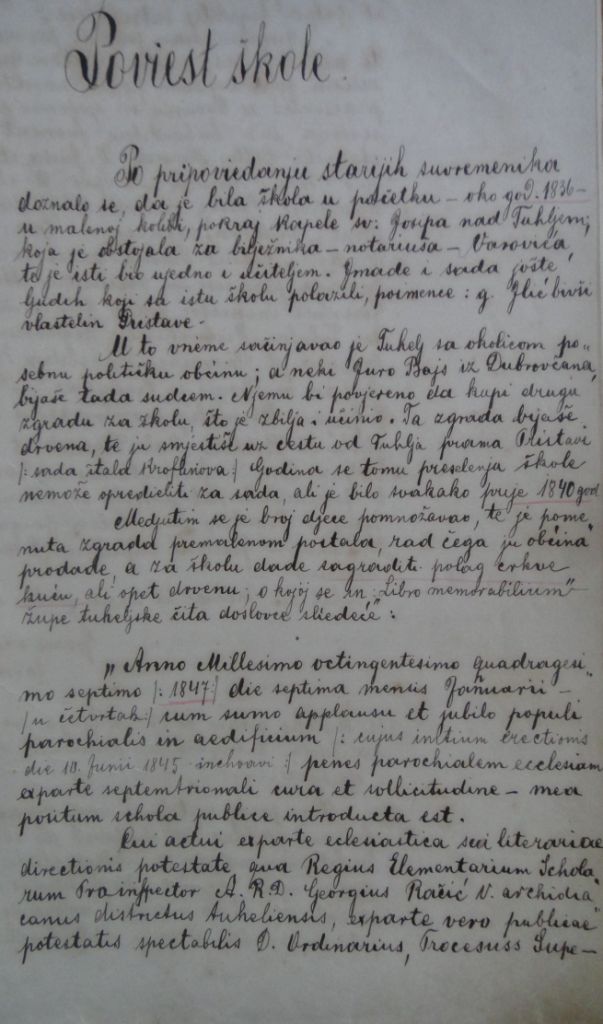 Poviest škole.
Po pripoviedanju starijih suvremenika
doznalo se, da je bila škola u početku – oko god. 1836 –
u malenoj kolibi, pokraj kapele sv. Josipa nad Tuhljem;
koja je obstojala za bilježnika – notariuša – Varovića,
te je isti bio ujedno i učiteljem. Imade i sada jošte
ljudih koji su istu školu polazili, poimence: g. Ilić bivši
vlastelin Pristave.
U to vrieme sačinjavao je Tuhelj sa okolicom po„
sebnu političku občinu; a neki Juro Bajs iz Dubrovčana,
bijaše tada sudcem. Njemu bi povjereno da kupi drugu
zgradu za školu, što je zbilja i učinio. Ta zgrada bijaše
drvena, te ju smjestiše uz cestu od Tuhlja prama Pristavi
/: sada štala Kroflinova :/ Godina se tomu preselenja škole
nemože opredieliti za sada, ali je bilo svakako prije 1840 god.
Medjutim se je broj djece pomnožavao, te je pome„
nuta zgrada premalenom postala, rad čega ju občina
prodade, a za školu dade sagraditi polag crkve
kuću, ali opet drvenu; o kojoj se in „Libro memorabilium"
župe tuheljske čita doslovce sliedeće":
„Anno Millesimo octingentesimo quadragesi„
mo septimo /: 1847 :/ die septima mensis Januarii –
/ u četvrtak :/ cum sumo applausu et jubilo populi
parochialis in aedificium /: cujus initium erectionis
die 10. Junii 1845 inchoavi :/ penes parochialem ecclesiam
exparte septemtrionali cura et sollicitudine – mea
positum schola publice introducta est.
Cui actui exparte eclesiastica seu literariae
directionis potestate, qua Regius Elementarium Schola„
rum Proinspector A. R. D. Georgius Račić V. archidia„
canus districtus tuheliensis, exparte vero publicae
potestatis spectabilis D. Ordinarius, Processus Supe–